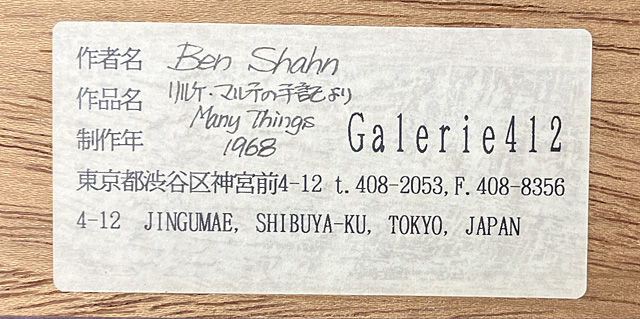 作者名 Ben Shahn
作品名 リルケ・マルテの手記より
Many Things
制作年 1968
Galerie412
東京都渋谷区神宮前4-12 t.408-2053,F.408-8356
4-12 JINGUMAE, SHIBUYA-KU, TOKYO, JAPAN